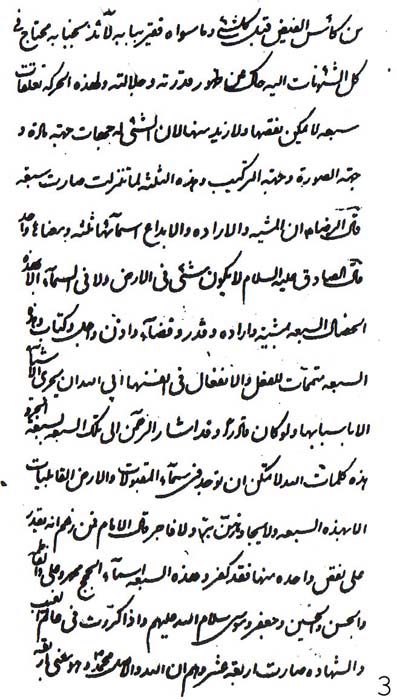 من كأس الفيض قبل كلشئ وما سواه فقير ببابه لائذ بجنابه محتاج في
كل الشئونات اليه حاك عن ظهور قدرته وجلالته ولهذه الحركة تعلقات
سبعه لا يمكن بنقصها ولا زيد منها لان الشئ له جهات جهة مادة و
جهة الصورة وجهة المركب وهذه الثلثة لما تنزلت صارت سبعه
قال الرضا ان المشيه والاراده والابداع اسمائها ثلثه ومعناها واحد
قال الصادق عليه السلام لا يكون شئ في الارض ولا في السماء الا بهذه
الخصال السبعه بمشية واراده وقدر وقضاء واذن واجل وكتاب وهذه
السبعه متممات للفعل والانفعال في انفسها ابى الله ان يجرى الاشياء
الا باسبابها ولو كان قادرا وقد اشار الرحمن الى تلك السبعه بسبعة ابحر
هذه كلمات الله لا يمكن ان توجد في سماء المقبولات والارض القابليات
الا بهذه السبعه ولا يجاوزهن بر ولا فاجر قال الامام فمن زعم انه يقدر
على نقص واحده منها فقد كفر وهذه السبعه اسماء الحجج محمد وعلي وفاطمة
والحسن والحسين وجعفر وموسى سلام الله عليهم واذا كررت في عالم الغيب
والشهاده صارت اربعة عشر وهم ان الله والاصل محمد وهو عني اربعة
3